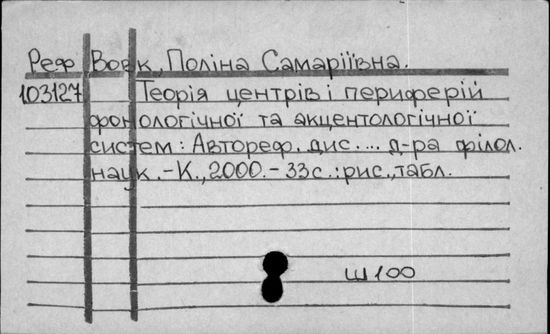 Реф Вовк, Поліна Самаріївна.
103127 Теорія центрів і периферій
фонологічної та акцентологічної
систем: Автореф. дис. ... д-ра філол.
наук. - К., 2000. - 33с.: рис., табл.
Ш100